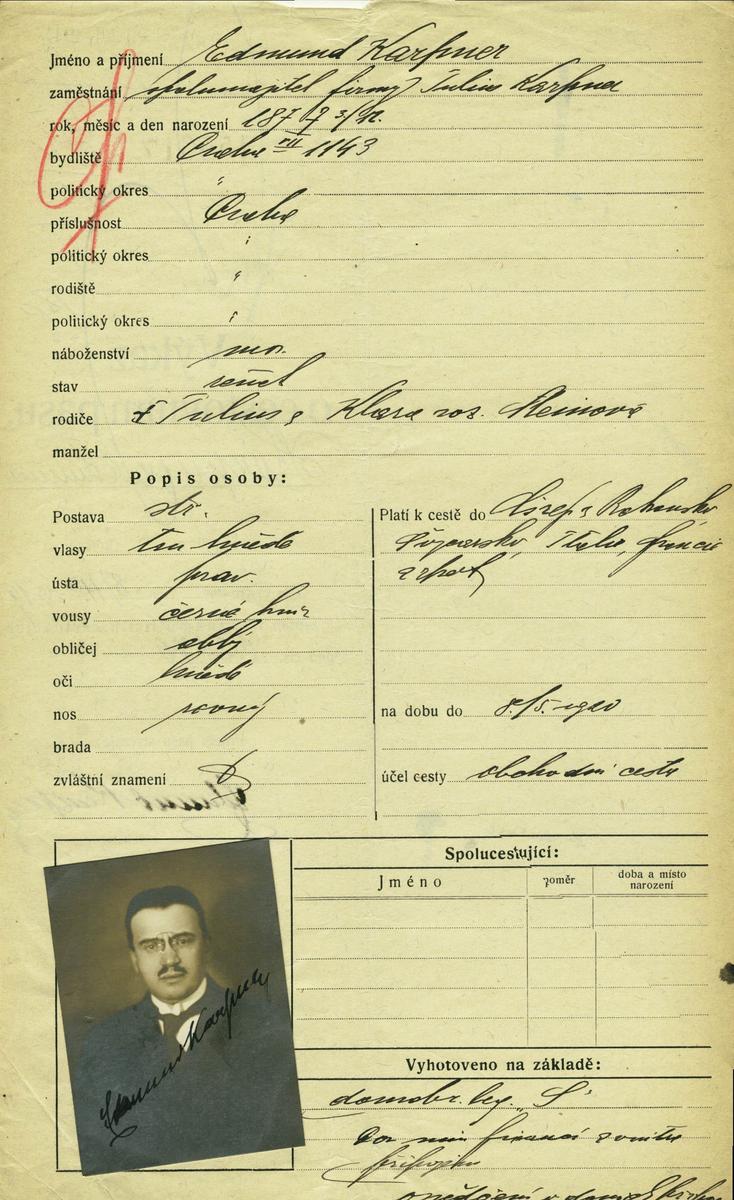 Jméno a příjmení Edmund Karpner
zaměstnání spolumajitel firmy Julius Karpner
rok, měsíc a den narození 1877
bydliště Praha VII 1143
politický okres "
příslušnost Praha
politický okres "
rodiště "
politický okres "
náboženství
stav
rodiče † Julius, Klara roz. Steinová
manžel
Popis osoby:
Postava stř.
vlasy tm. hnědé
ústa prav.
vousy černé knír
obličej obl.
oči hnědé
nos rovný
brada
zvláštní znamení
Platí k cestě do Rakousko
Švýcarsko, Italie, Francie
a zpět
na dobu do 8./5. 1920
účel cesty obchodní cesta
Edmund Karpner
Spolucestující:
Jméno poměr doba a místo narození
Vyhotoveno na základě:
domobr. leg.
min financí